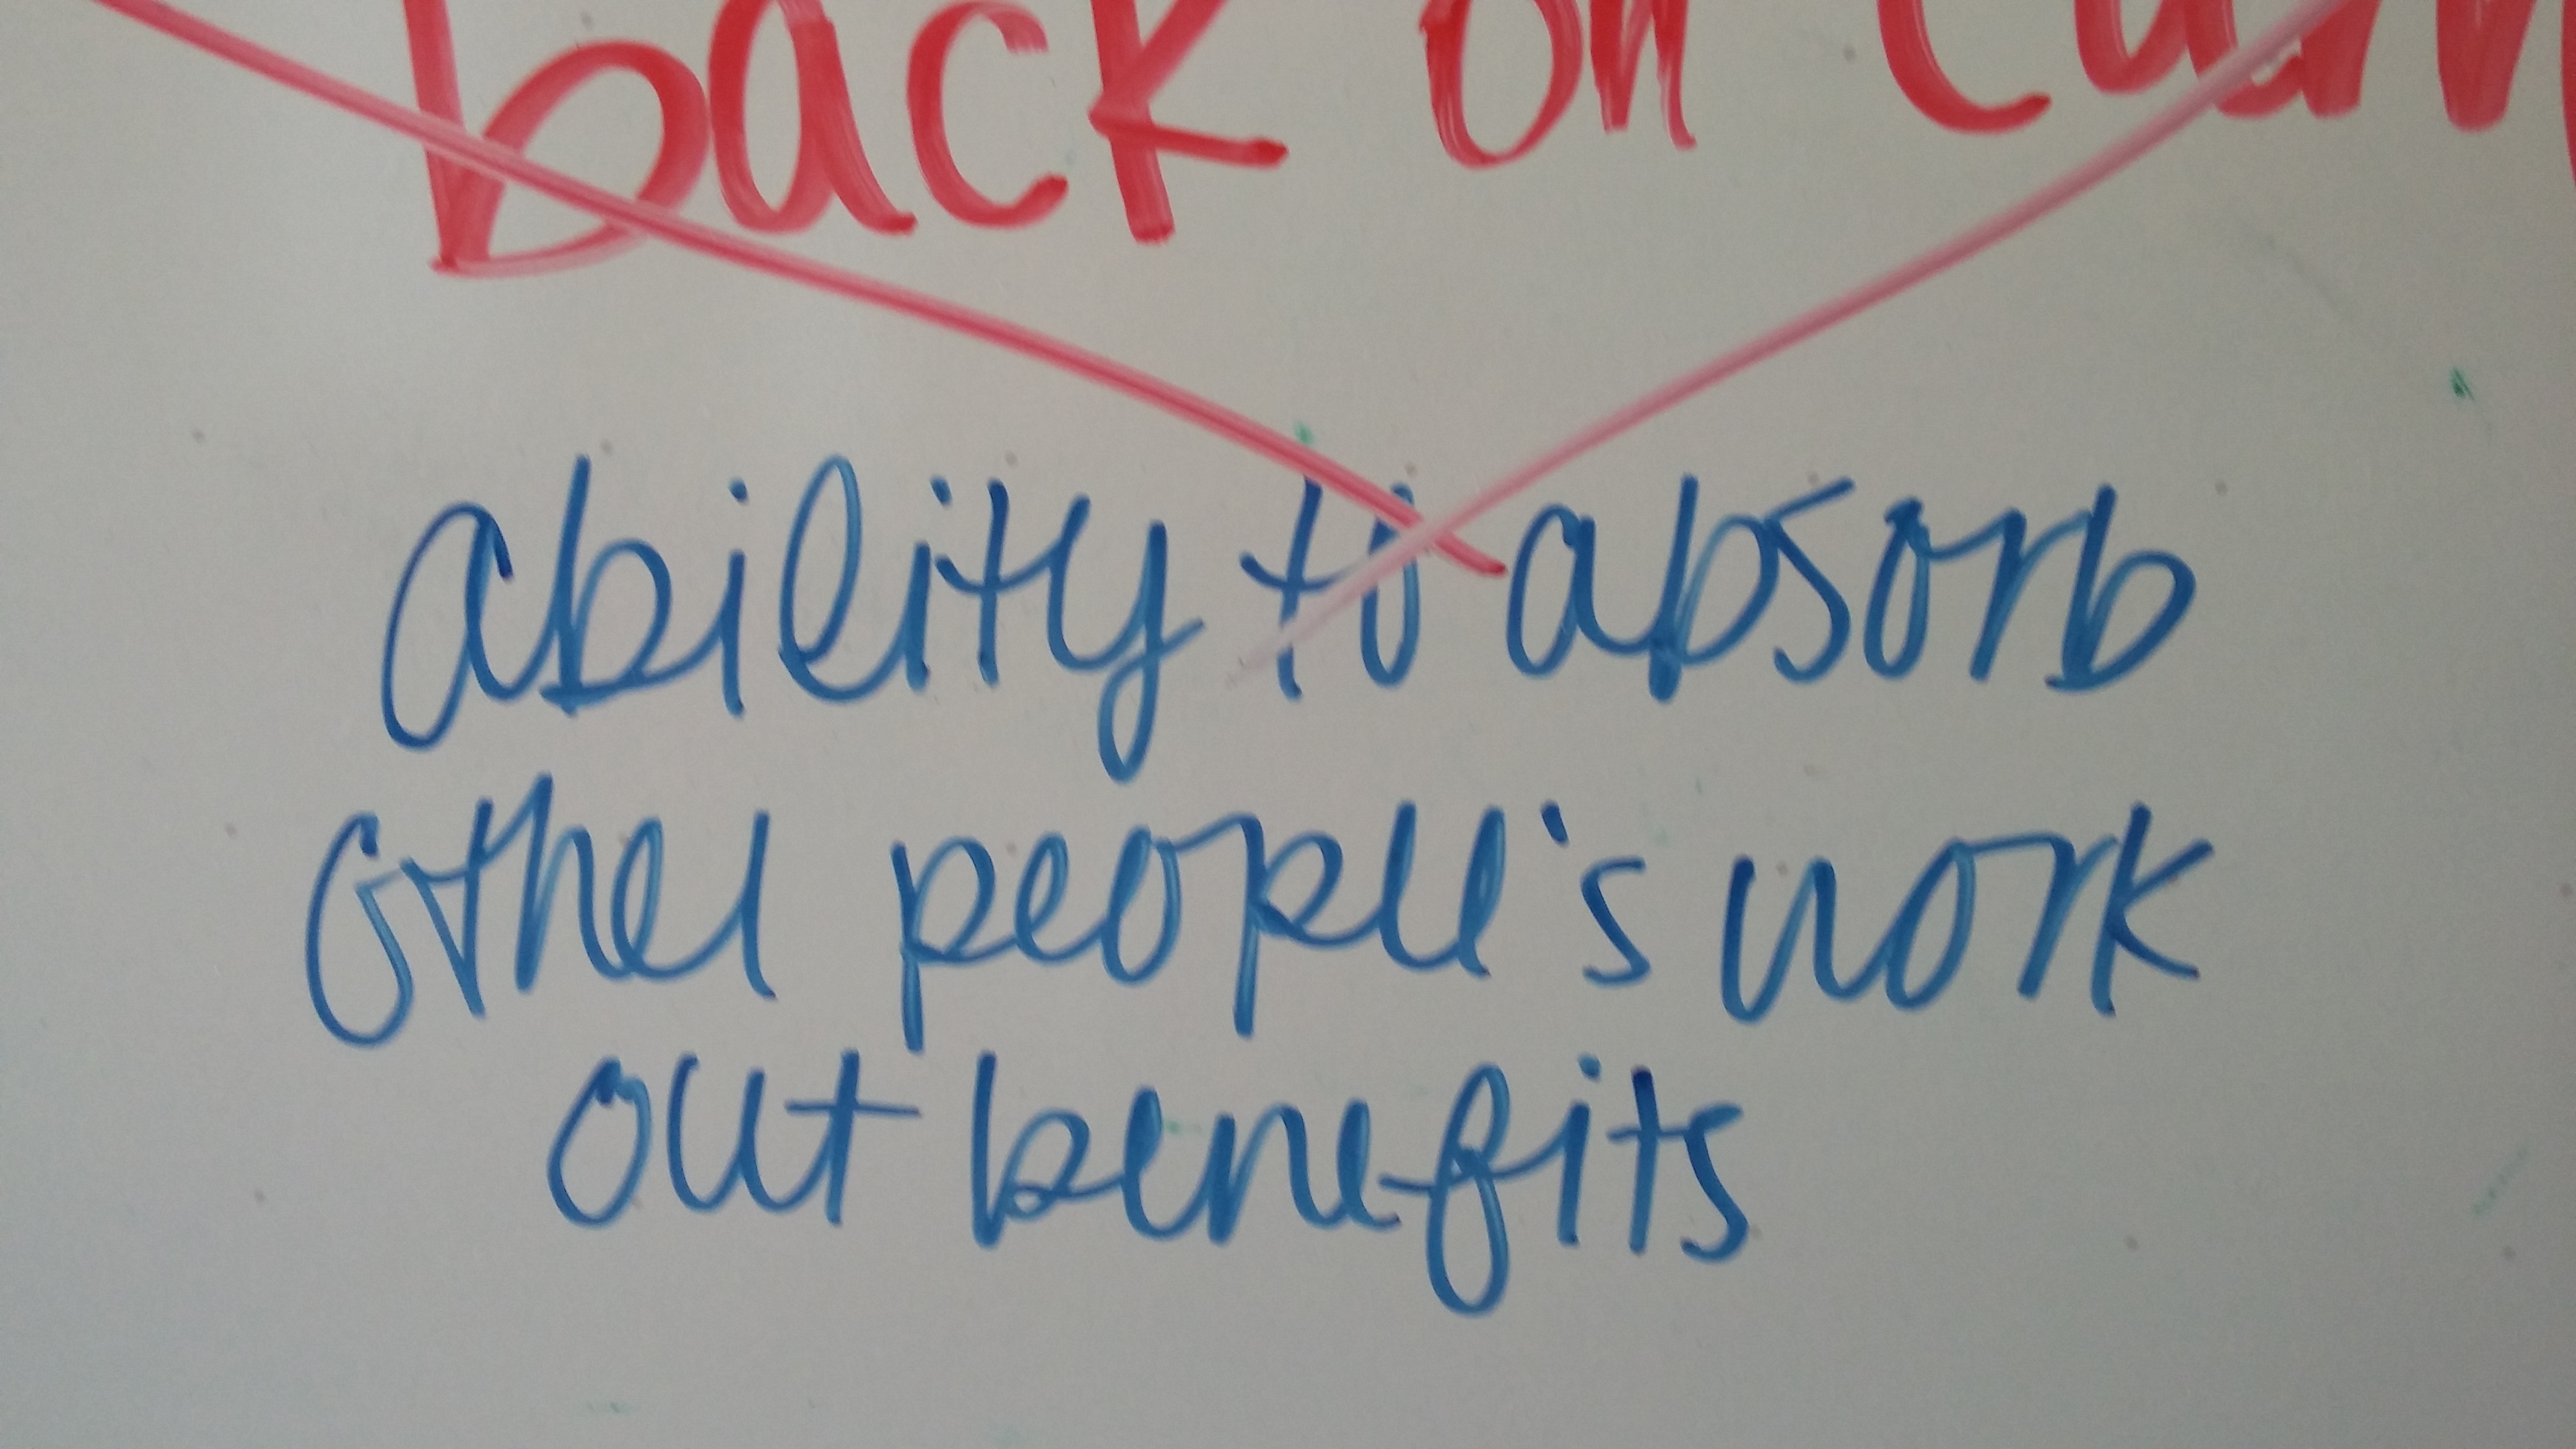 back on
ability to absorb
other people's work
out benefits